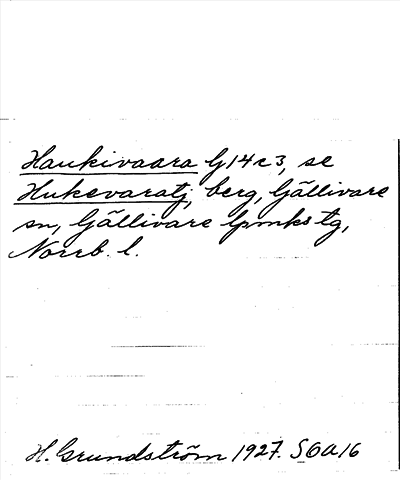 Haukivaara G14c3, se
Hukevaratj, berg, Gällivare
sn, Gällivare lpmks tg,
Norrb. l.
H. Grundström 1927. SOA16